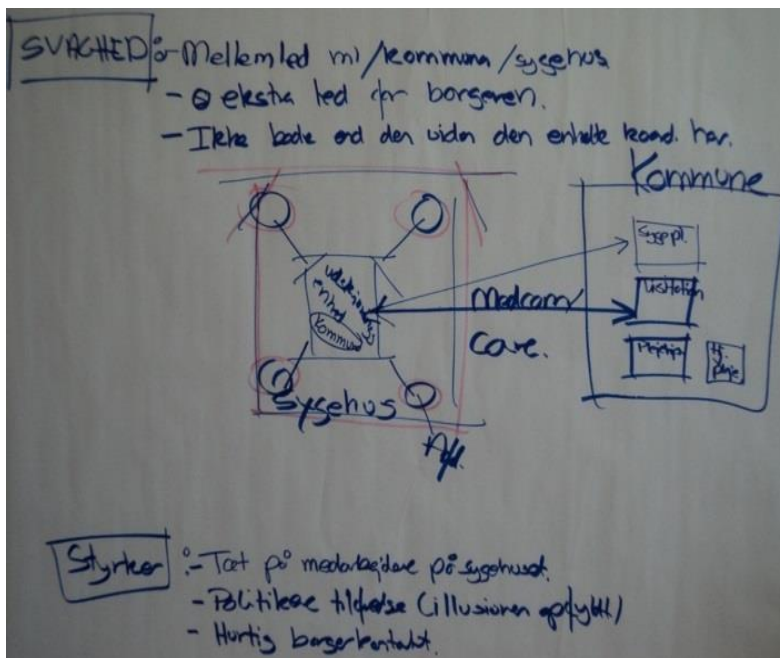 SVAGHED :- Mellemled ml /kommune /sygehus
- ekstra led for borgeren.
- Ikke bedre end den viden den enkelte koord. har.
Kommune
Sygepl.
Visitation
udskrivnings
enhed
kommune
Medcom/
Care.
Hj.
pleje
Sygehus
Afd.
Styrker :- Tæt på medarbejdere på sygehuset.
- Politikere tilfredse (illusionen opfyldt)
- Hurtig borgerkontakt.